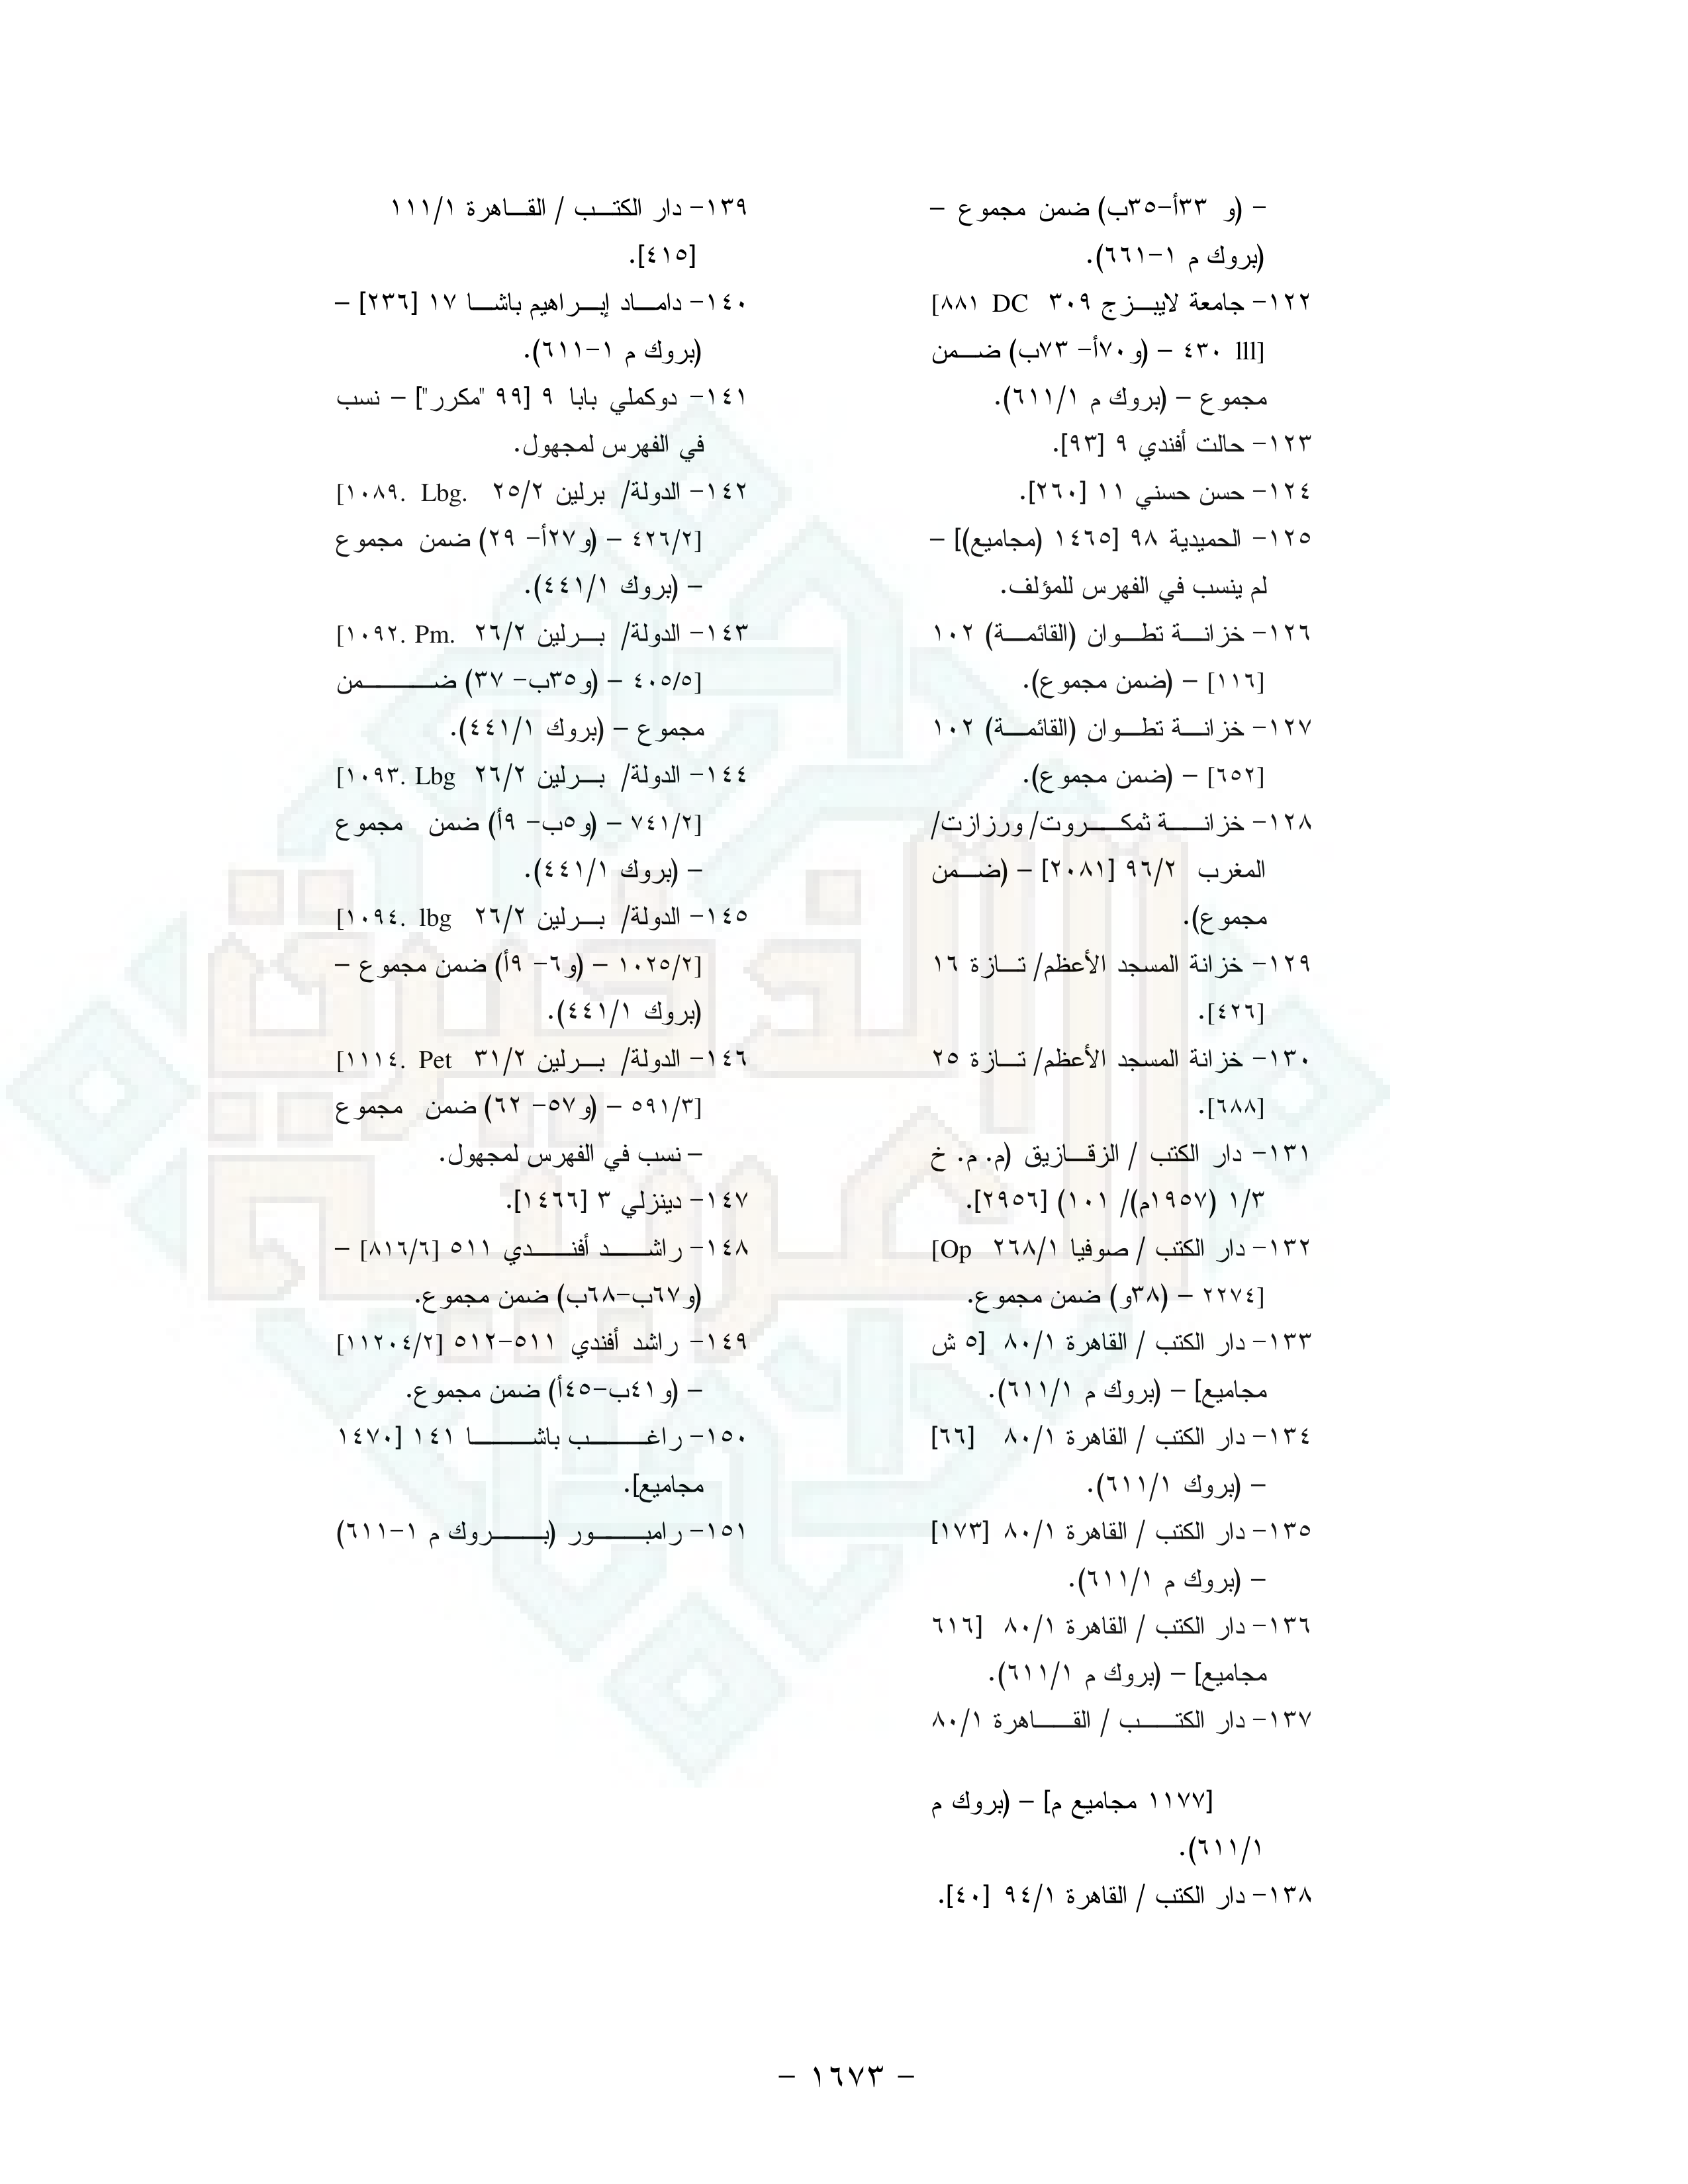 – (و ٣٣أ–٣٥ب) ضمن مجموع –
(بروك م ١–٦٦١).
١٢٢– جامعة لايبزج ٣٠٩ DC ٨٨١]
[lll ٤٣٠ – (و٧٠أ– ٧٣ب) ضمن
مجموع – (بروك م ٦١١/١).
١٢٣– حالت أفندي ٩ [٩٣].
١٢٤– حسن حسني ١١ [٢٦٠].
١٢٥– الحميدية ٩٨ [١٤٦٥ (مجاميع)] –
لم ينسب في الفهرس للمؤلف.
١٢٦– خزانة تطوان (القائمة) ١٠٢
[١١٦] – (ضمن مجموع).
١٢٧– خزانة تطوان (القائمة) ١٠٢
[٦٥٢] – (ضمن مجموع).
١٢٨– خزانة ثمكروت/ ورزازت/
المغرب ٩٦/٢ [٢٠٨١] – (ضمن
مجموع).
١٢٩– خزانة المسجد الأعظم/ تازة ١٦
[٤٢٦].
١٣٠– خزانة المسجد الأعظم/ تازة ٢٥
[٦٨٨].
١٣١– دار الكتب / الزقازيق (م. م. خ
١/٣ (١٩٥٧م)/ ١٠١) [٢٩٥٦].
١٣٢– دار الكتب / صوفيا ٢٦٨/١ Op]
[٢٢٧٤ – (٣٨و) ضمن مجموع.
١٣٣– دار الكتب / القاهرة ٨٠/١ [٥ ش
مجاميع] – (بروك م ٦١١/١).
١٣٤– دار الكتب / القاهرة ٨٠/١ [٦٦]
– (بروك ٦١١/١).
١٣٥– دار الكتب / القاهرة ٨٠/١ [١٧٣]
– (بروك م ٦١١/١).
١٣٦– دار الكتب / القاهرة ٨٠/١ [٦١٦
مجاميع] – (بروك م ٦١١/١).
١٣٧– دار الكتب / القاهرة ٨٠/١
[١١٧٧ مجاميع م] – (بروك م
٦١١/١).
١٣٨– دار الكتب / القاهرة ٩٤/١ [٤٠].
١٣٩– دار الكتب / القاهرة ١١١/١
[٤١٥].
١٤٠– داماد إبراهيم باشا ١٧ [٢٣٦] –
(بروك م ١–٦١١).
١٤١– دوكملي بابا ٩ [٩٩ "مكرر"] – نسب
في الفهرس لمجهول.
١٤٢– الدولة/ برلين ٢٥/٢ .Lbg .١٠٨٩]
[٤٢٦/٢ – (و٢٧أ– ٢٩) ضمن مجموع
– (بروك ٤٤١/١).
١٤٣– الدولة/ برلين ٢٦/٢ .Pm .١٠٩٢]
[٤٠٥/٥ – (و٣٥ب– ٣٧) ضمن
مجموع – (بروك ٤٤١/١).
١٤٤– الدولة/ برلين ٢٦/٢ Lbg .١٠٩٣]
[٧٤١/٢ – (و٥ب– ٩أ) ضمن مجموع
– (بروك ٤٤١/١).
١٤٥– الدولة/ برلين ٢٦/٢ lbg .١٠٩٤]
[١٠٢٥/٢ – (و٦– ٩أ) ضمن مجموع –
(بروك ٤٤١/١).
١٤٦– الدولة/ برلين ٣١/٢ Pet .١١١٤]
[٥٩١/٣ – (و٥٧– ٦٢) ضمن مجموع
– نسب في الفهرس لمجهول.
١٤٧– دينزلي ٣ [١٤٦٦].
١٤٨– راشد أفندي ٥١١ [٨١٦/٦] –
(و٦٧ب–٦٨ب) ضمن مجموع.
١٤٩– راشد أفندي ٥١١–٥١٢ [١١٢٠٤/٢]
– (و٤١ب–٤٥أ) ضمن مجموع.
١٥٠– راغب باشا ١٤١ [١٤٧٠
مجاميع].
١٥١– رامبور (بروك م ١–٦١١)
– ١٦٧٣ –
الذخيرة
العربية